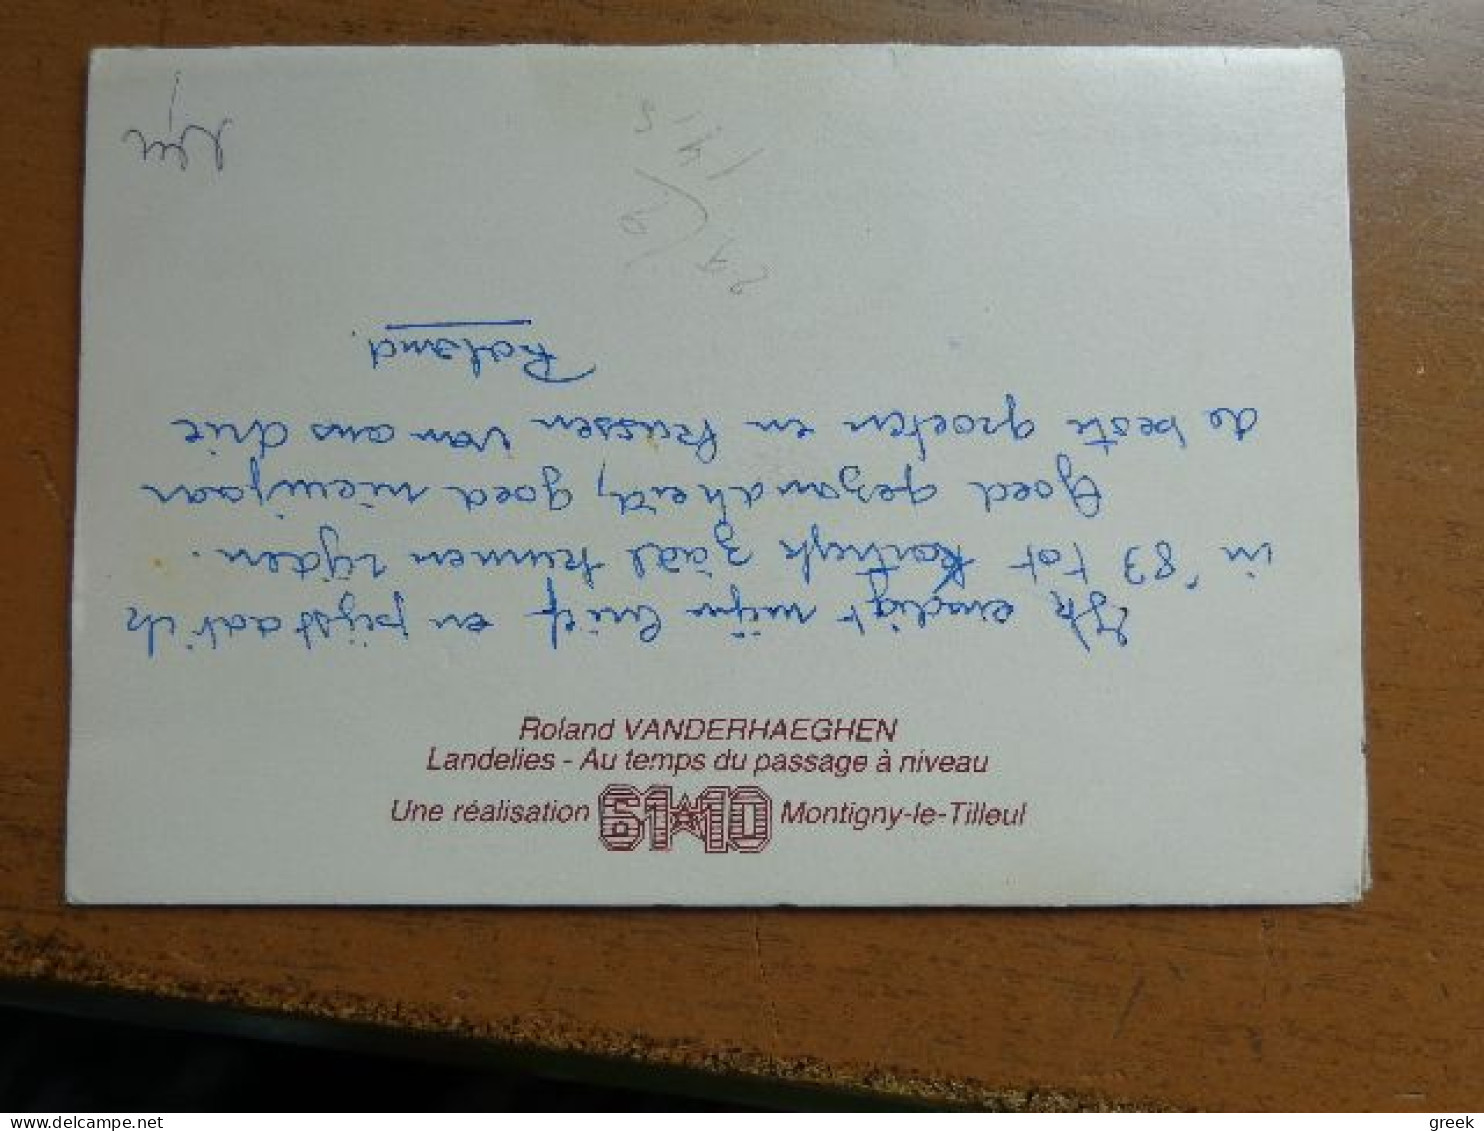 Roland VANDERHAEGHEN
Landelies - Au temps du passage à niveau
Une réalisation 61★10 Montigny-le-Tilleul
Ik eindigt mijn brief en dat ik
in '83 tot Kortrijk zaal kunnen rijden.
Goed gezondheid, goed nieuwjaar
de beste groeten en kussen van ons drie
Roland.
29/9
www.delcampe.net
greek